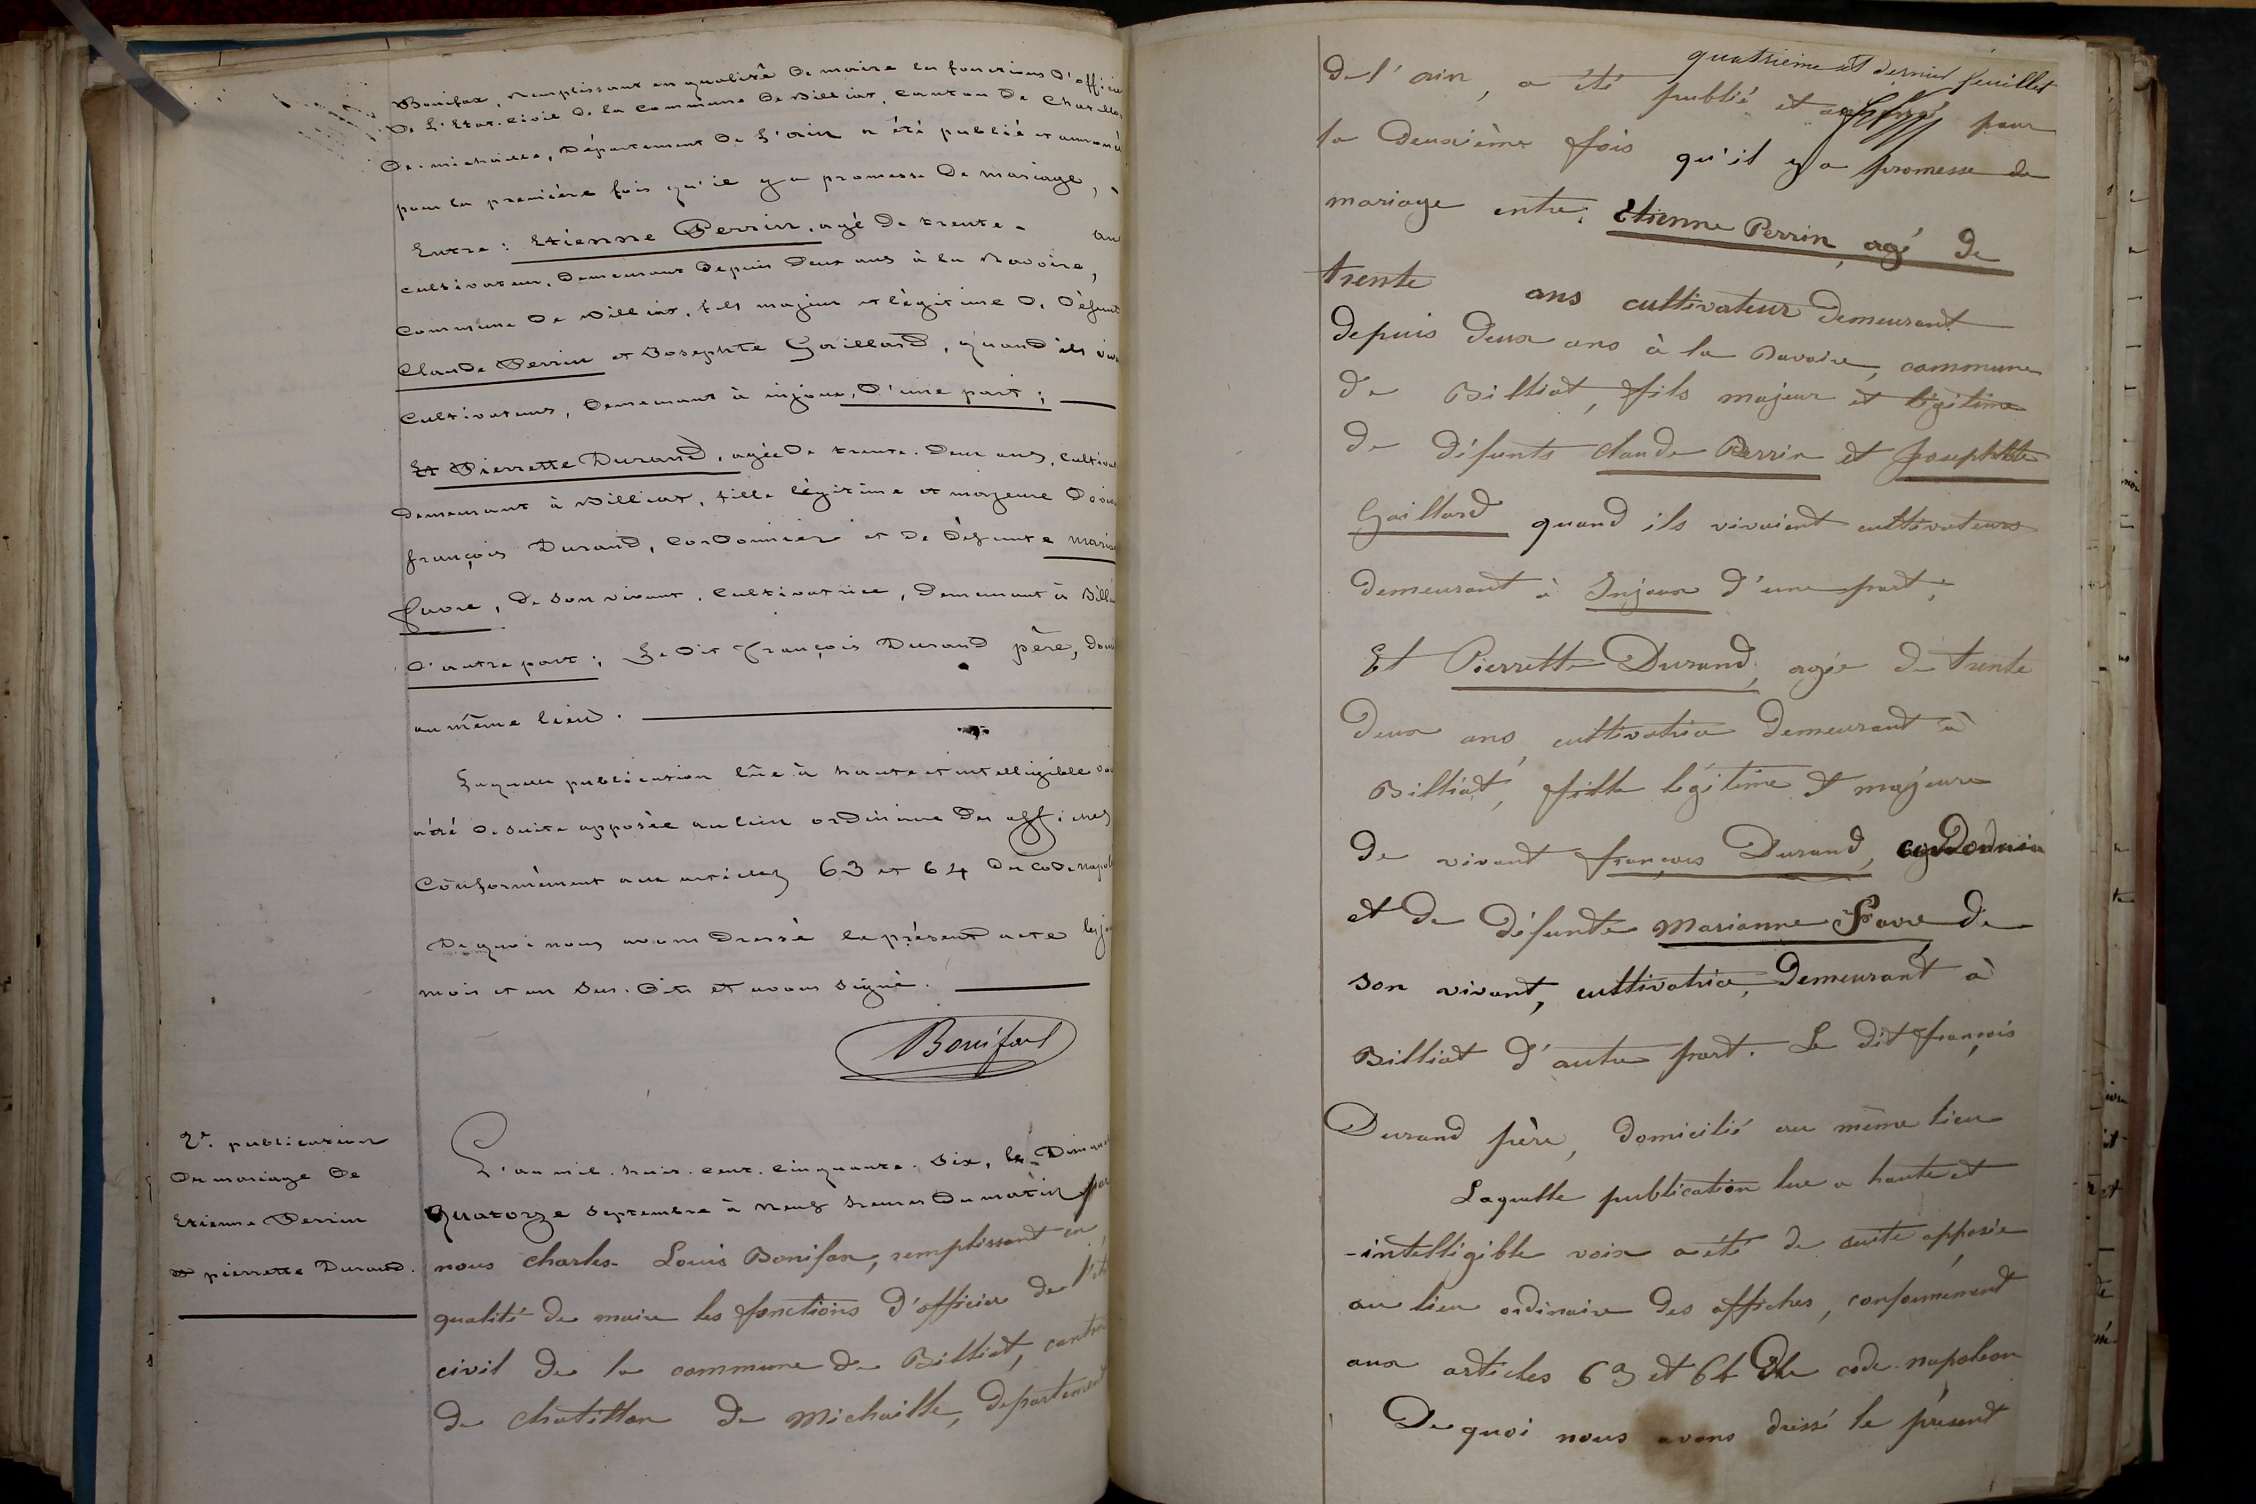 Bonifax, remplissant en qualité de maire les fonctions d'officie
de l'Etat-civil de la commune de Billiat, canton de Chatillon
de-michaille, Département de l'ain a été publié et annoncé
pour la première fois qu'il y a promesse de mariage,
Entre : Etienne Perrin, agé de trente- an
cultivateur, demeurant depuis deux ans à la Navoire,
commune de Billiat, fils majeur et légitime de défunts
Claude Perrin et Josephte Gaillard, quand ils viv
cultivateurs, demeurant à injoux, d'une part ;
Et Pierrette Durand, agée de trente-deux ans, cultivat
demeurant à Billiat, fille légitime et majeure de viv
françois Durand, cordonnier et de défunte Maria
favre, de son vivant, cultivatrice, demeurant à Billia
d'autre part ; Le dit François Durand père, domi
au même lieu.
Laquelle publication lûe à haute et intelligible voi
a été de suite apposée au lieu ordinaire des affiches
conformément aux articles 63 et 64 du code napol
De quoi nous avons dressé le présent acte les jo
mois et an sus-dits et avons signé.
Bonifax
2e. publication
de mariage de
Etienne Perrin
et pierrette Durand.
L'an mil-huit-cent-cinquante-six, le Diman
quatorze septembre à neuf heures du matin par
nous charles-Louis Bonifax, remplissant en
qualité de maire les fonctions d'officier de l'ét
civil de la commune de Billiat, canton
de chatillon de Michaille, departement
quatrième et dernier feuillet
de l'ain, a été publié et annoncé pour
la deuxième fois qu'il y a promesse de
mariage entre : Etienne Perrin, agé de
trente ans cultivateur demeurant
depuis deux ans à la Navoire, commune
de Billiat, fils majeur et légitime
de défunts claude Perrin et Josephte
Gaillard quand ils vivaient cultivateurs
demeurant à Injoux d'une part ;
Et Pierrette Durand, agée de trente
deux ans, cultivatrice demeurant à
Billiat, fille légitime et majeure
de vivant françois Durand, cordonnier
et de défunte Marianne Favre de
son vivant, cultivatrice, demeurant à
Billiat d'autre part. Le dit françois
Durand père, domicilié au même lieu
Laquelle publication lue a haute et
-intelligible voix a été de suite apposée
au lieu ordinaire des affiches, conformément
aux articles 63 et 64 du code-napoléon
De quoi nous avons dressé le présent